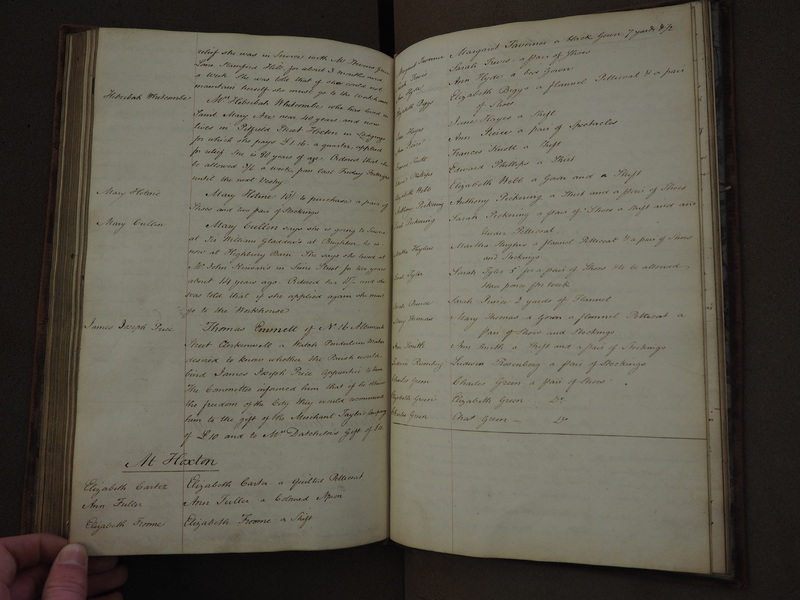 relief she was in Service with Mr Thomas
Lime Hampton Hill for about 3 months
a week She was told that if she could not
maintain herself she must go to the Workhouse
Hebzebah Whatcombe Mrs Hebzebah Whatcombe who has lived in
Saint Mary Axe near 40 years and now
lives in Pitfield Street Hoxton in Lodgings
for which she pays £1.4.- a quarter, applied
for relief she is 81 years of age. Ordered that she
be allowed 3/6 a week from last Friday
until the next Vestry
Mary Holmes Mary Holmes 10/ to purchase a pair of
Shoes and two pair of Stockings
Mary Cullen Mary Cullen says she is going to Service
at Sir William at Brighton, he is
now at Highbury Barn. She says she lived at
Mr John in Lime Street for two years
about 14 years ago. Ordered her and she
was told that if she applied again she must
go to the Workhouse
James Joseph Price Thomas Emmell of No 16
Street Clerkenwell a Watch Pendulum Maker
desired to know whether the Parish would
bind James Joseph Price Apprentice to him
The Committee informed him that if he
the freedom of the City they would recommend
him to the gift of the Merchant Taylors Company
of £10 and to Mrs Gift of
At Hoxton
Elizabeth Carter Elizabeth Carter a Quilted Petticoat
Ann Fuller Ann Fuller a Colored Apron
Elizabeth Froome Elizabeth Froome a Shift
Margaret Margaret a black Gown 7 yards
Sarah Sarah a pair of Shoes
Ann Hyde Ann Hyde a Gown
Elizabeth Biggs Elizabeth Biggs a flannel Petticoat & a pair
of Shoes
Jane Hayes Jane Hayes a Shift
Ann Ann a pair of Spectacles
Frances Knott Frances Knott a Shift
Edward Phillips Edward Phillips a Shirt
Elizabeth Webb Elizabeth Webb a Gown and a Shift
Anthony Pickening Anthony Pickening a Shirt and a pair of Shoes
Sarah Pickening Sarah Pickening a pair of Shoes a Shift and an
Under Petticoat
Martha Hughes Martha Hughes a flannel Petticoat & a pair of Shoes
and Stockings
Sarah Tyler Sarah Tyler 5/ for a pair of Shoes & to be allowed
three pence per week
Sarah Sarah 2 yards of Flannel
Mary Thomas Mary Thomas a Gown a flannel Petticoat a
pair of Shoes and Stockings
Ann Smith Ann Smith a Shift and a pair of Stockings
Rosenberg Rosenberg a pair of Stockings
Charles Green Charles Green a pair of Shoes
Elizabeth Green Elizabeth Green - Do
Charles Green Chas Green - Do